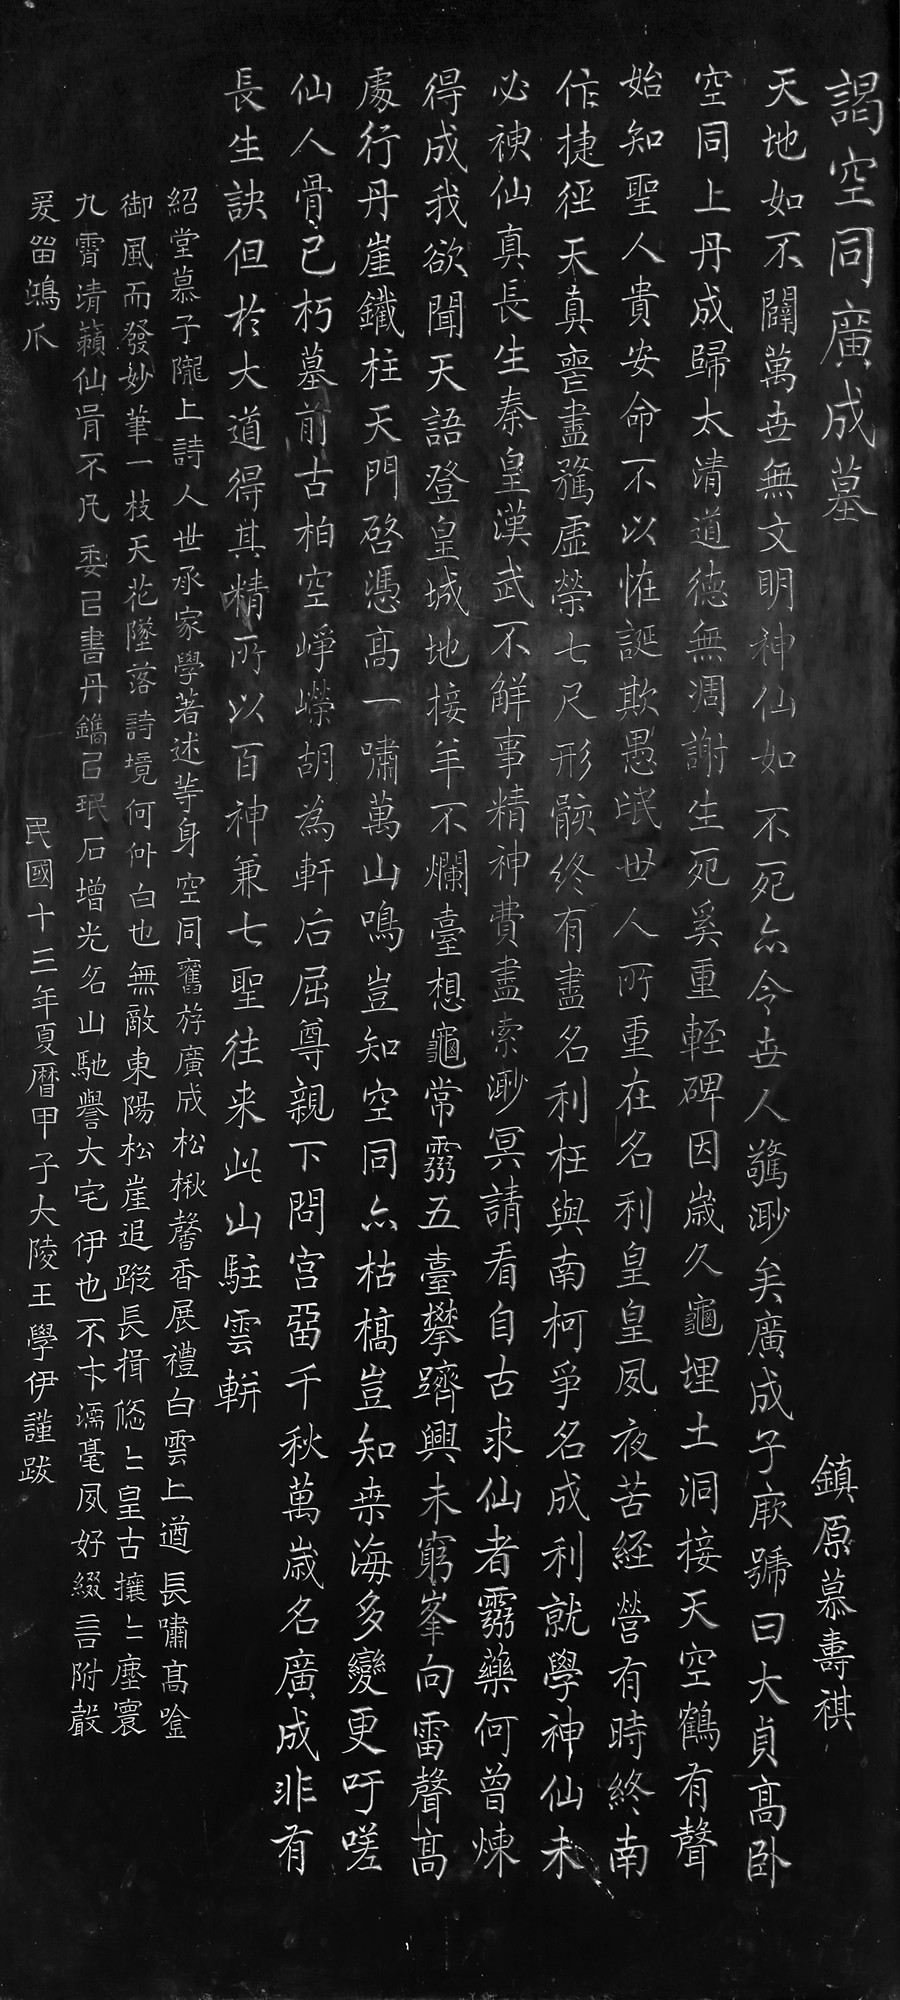 謁空同廣成墓
鎮原慕壽祺
天地如不闢萬世無文明神仙如不死亦令世人驚渺矣廣成子厥號曰大貞高卧
空同上丹成歸太清道德無凋謝生死奚重輊碑因歲久龜埋土洞接天空鶴有聲
始知聖人貴安命不以恠誕欺愚氓世人所重在名利皇皇夙夜苦經營有時終南
作捷徑天真喪盡騖虛榮七尺形骸終有盡名利枉與南柯爭名成利就學神仙未
必神仙真長生秦皇漢武不解事精神費盡索渺冥請看自古求仙者靈藥何曾煉
得成我欲聞天語登皇城地接羊不爛臺想龜常靈五臺攀躋興未窮峯向雷聲高
處行丹崖鐵柱天門啓憑高一嘯萬山鳴豈知空同亦枯槁豈知桒海多變更吁嗟
仙人骨已朽墓前古柏空崢嶸胡為軒后屈尊親下問宮留千秋萬歲名廣成非有
長生訣但於大道得其精所以百神兼七聖往来此山駐雲輧
紹堂慕子隴上詩人世承家學著述等身空同舊游廣成松楸馨香展禮白雲上遒長嘯高唫
御風而發妙筆一枝天花墜落詩境何似白也無敵東陽松崖追蹤長揖悠〻皇古攘〻塵寰
九霄清籟仙骨不凡委已書丹鐫已珉石增光名山馳譽大宅伊也不卞濡毫夙好綴言附嚴
爰留鴻爪
民國十三年夏曆甲子大陵王學伊謹跋